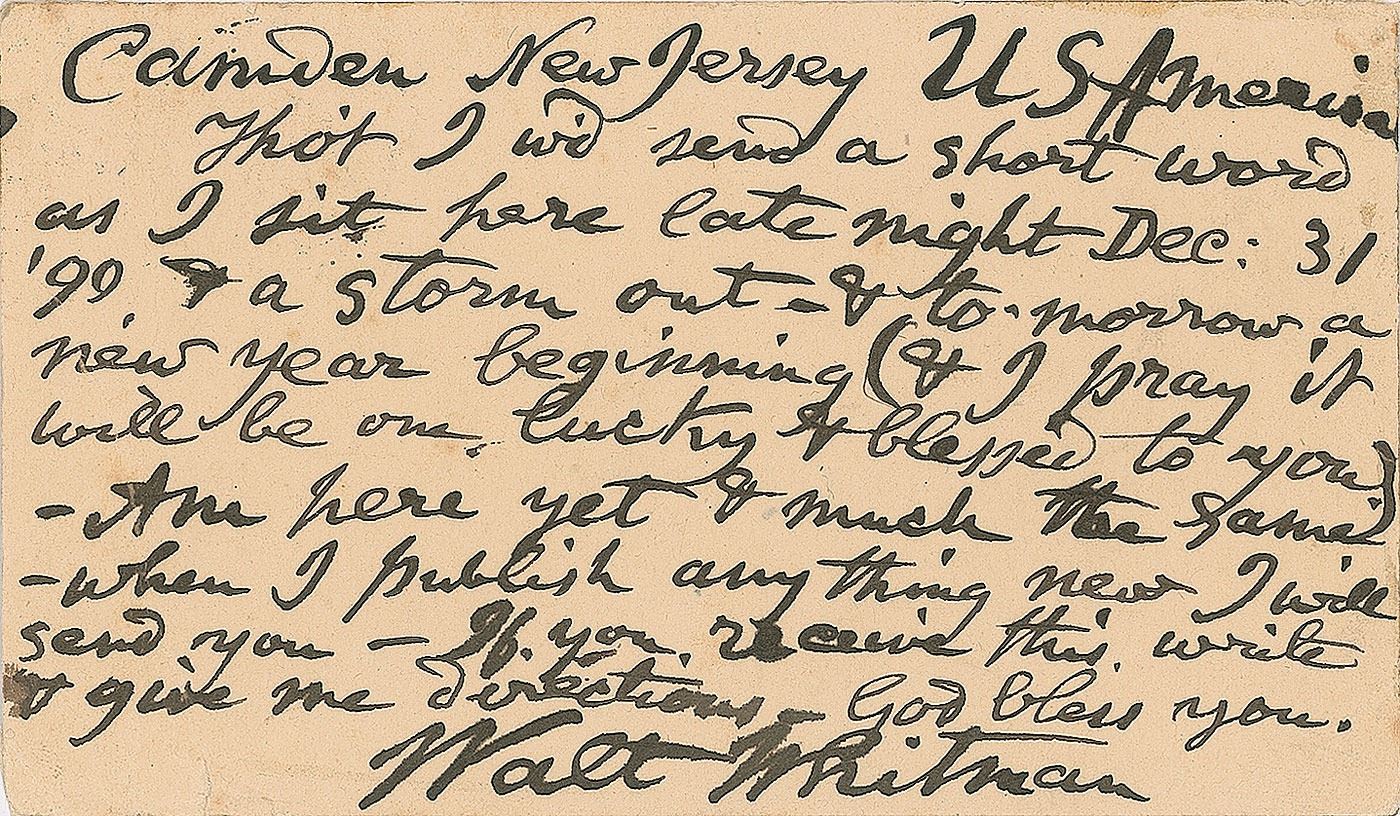 Camden New Jersey U S America
Tho't I w'd send a short word
as I sit here late night Dec: 31
'90 & a storm out - & to-morrow a
new year beginning (& I pray it
will be one lucky & blessed to you)
- Am here yet & much the same
- when I publish any thing new I will
send you - If you receive this write
& give me directions - God bless you.
Walt Whitman